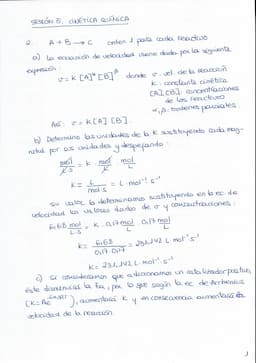 SESIÓN 5. CINÉTICA QUÍMICA
2. A + B → C orden 1 para cada reactivo
a) La ecuación de velocidad viene dada por la siguiente
expresión:
v = K [A]^α [B]^β donde v: vel. de la reacción
K: constante cinética
[A],[B]: concentraciones
de los reactivos
α, β: órdenes parciales
Así: v = K [A] [B]
b) Determino las unidades de la K sustituyendo cada mag-
nitud por sus unidades y despejando:
mol/L·s = K · mol/L · mol/L
K = L/mol·s = L·mol⁻¹·s⁻¹
Su valor lo determinamos sustituyendo en la ec. de
velocidad los valores dados de v y concentraciones:
6,68 mol/L·s = K · 0,17 mol/L · 0,17 mol/L
K = 6,68/0,17·0,17 = 231,142 L mol⁻¹ s⁻¹
K = 231,142 L·mol⁻¹·s⁻¹
c) Si consideramos que adicionamos un catalizador positivo,
éste disminuirá la Ea, por lo que según la ec. de Arrhenius
(K = A e^-Ea/RT), aumentará K y en consecuencia aumentará la
velocidad de la reacción.